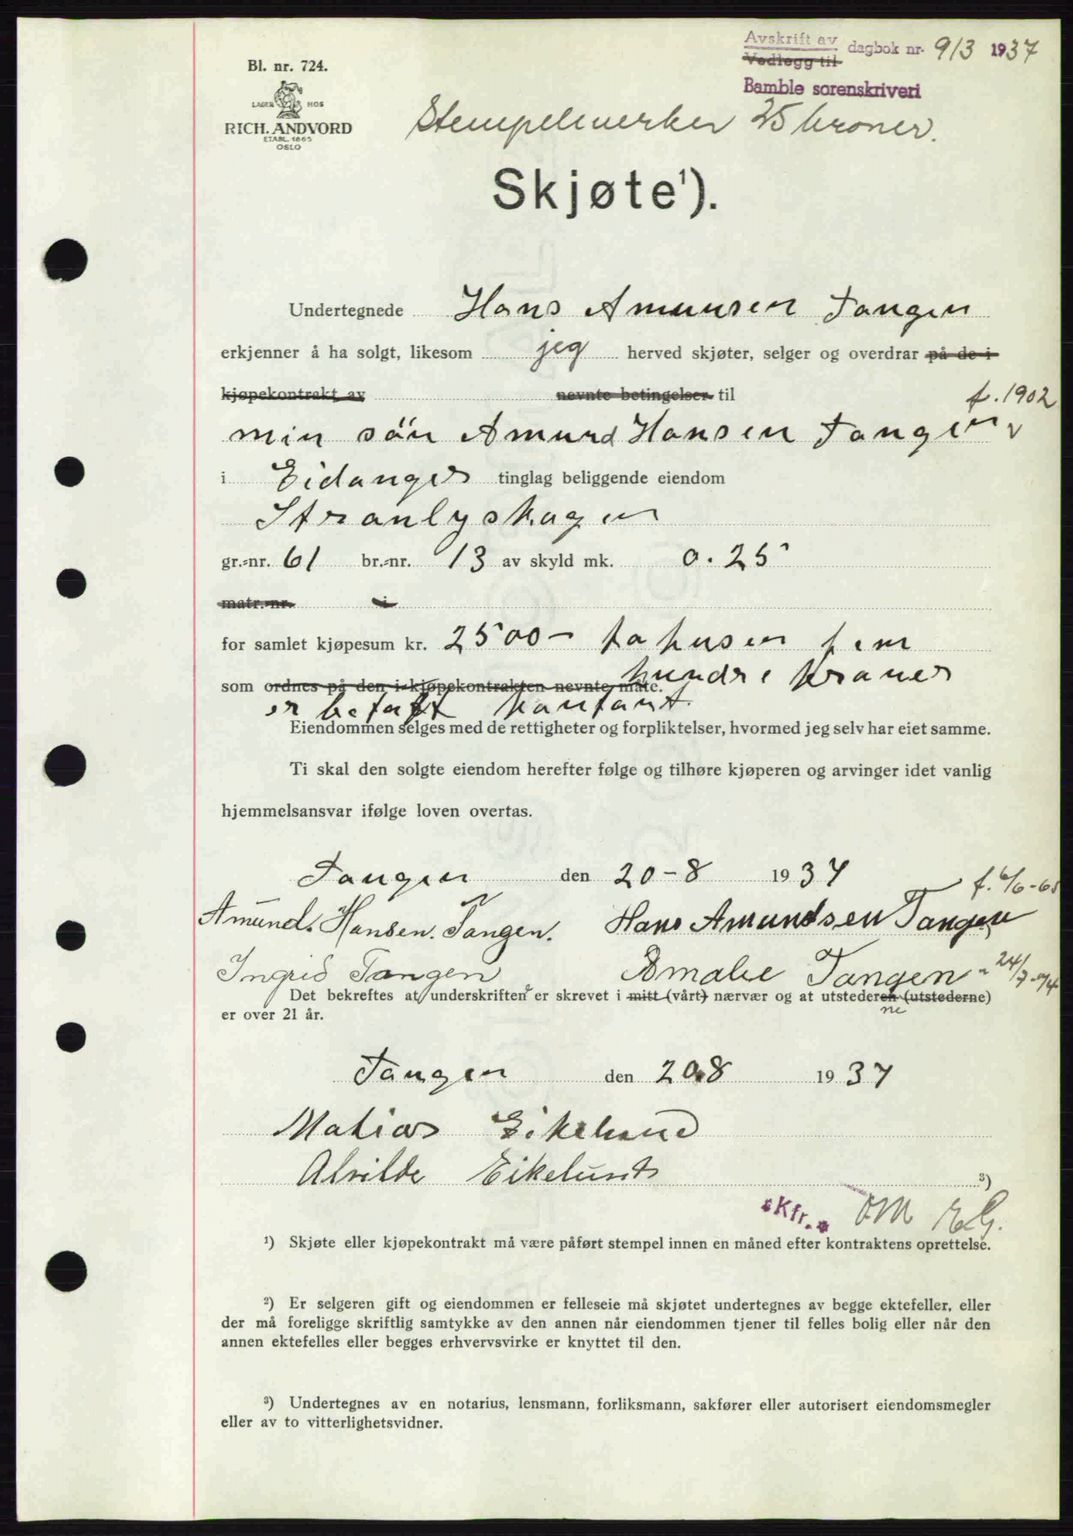 Avskrift av
Vedlegg til dagbok nr. 913 1937
Bamble sorenskriveri
Bl. nr. 724.
LAGER HOS
RICH. ANDVORD
ETABL. 1865
OSLO
Stempelmerker 25 kroner.
Skjøte¹).
Undertegnede Hans Amunsen Tangen
erkjenner å ha solgt, likesom jeg herved skjøter, selger og overdrar på de i
kjøpekontrakt av nevnte betingelser til f. 1902
min sön Amund Hansen Tangen
i Eidanger tinglag beliggende eiendom
Stranlyskogen
gr.-nr. 61 br.-nr. 13 av skyld mk. 0.25
matr.-nr. i
for samlet kjøpesum kr. 2500- totusen fem
hundre kroner
som ordnes på den i kjøpekontrakten nevnte måte.
er betalt kontant.
Eiendommen selges med de rettigheter og forpliktelser, hvormed jeg selv har eiet samme.
Ti skal den solgte eiendom herefter følge og tilhøre kjøperen og arvinger idet vanlig
hjemmelsansvar ifølge loven overtas.
Tangen den 20-8 1937
f. 6/6-65
Amund Hansen Tangen. Hans Amundsen Tangen
Ingrid Tangen Amalie Tangen " 24/7-74
Det bekreftes at underskriften er skrevet i mitt (vårt) nærvær og at utstederen (utstederne)
ne
er over 21 år.
Tangen den 20.8 1937
Matias Eikelund
Alvilde Eikelund
³)
*Kfr.* OM EG.
¹) Skjøte eller kjøpekontrakt må være påført stempel innen en måned efter kontraktens oprettelse.
²) Er selgeren gift og eiendommen er felleseie må skjøtet undertegnes av begge ektefeller, eller
der må foreligge skriftlig samtykke av den annen når eiendommen tjener til felles bolig eller når den
annen ektefelles eller begges erhvervsvirke er knyttet til den.
³) Undertegnes av en notarius, lensmann, forliksmann, sakfører eller autorisert eiendomsmegler
eller av to vitterlighetsvidner.